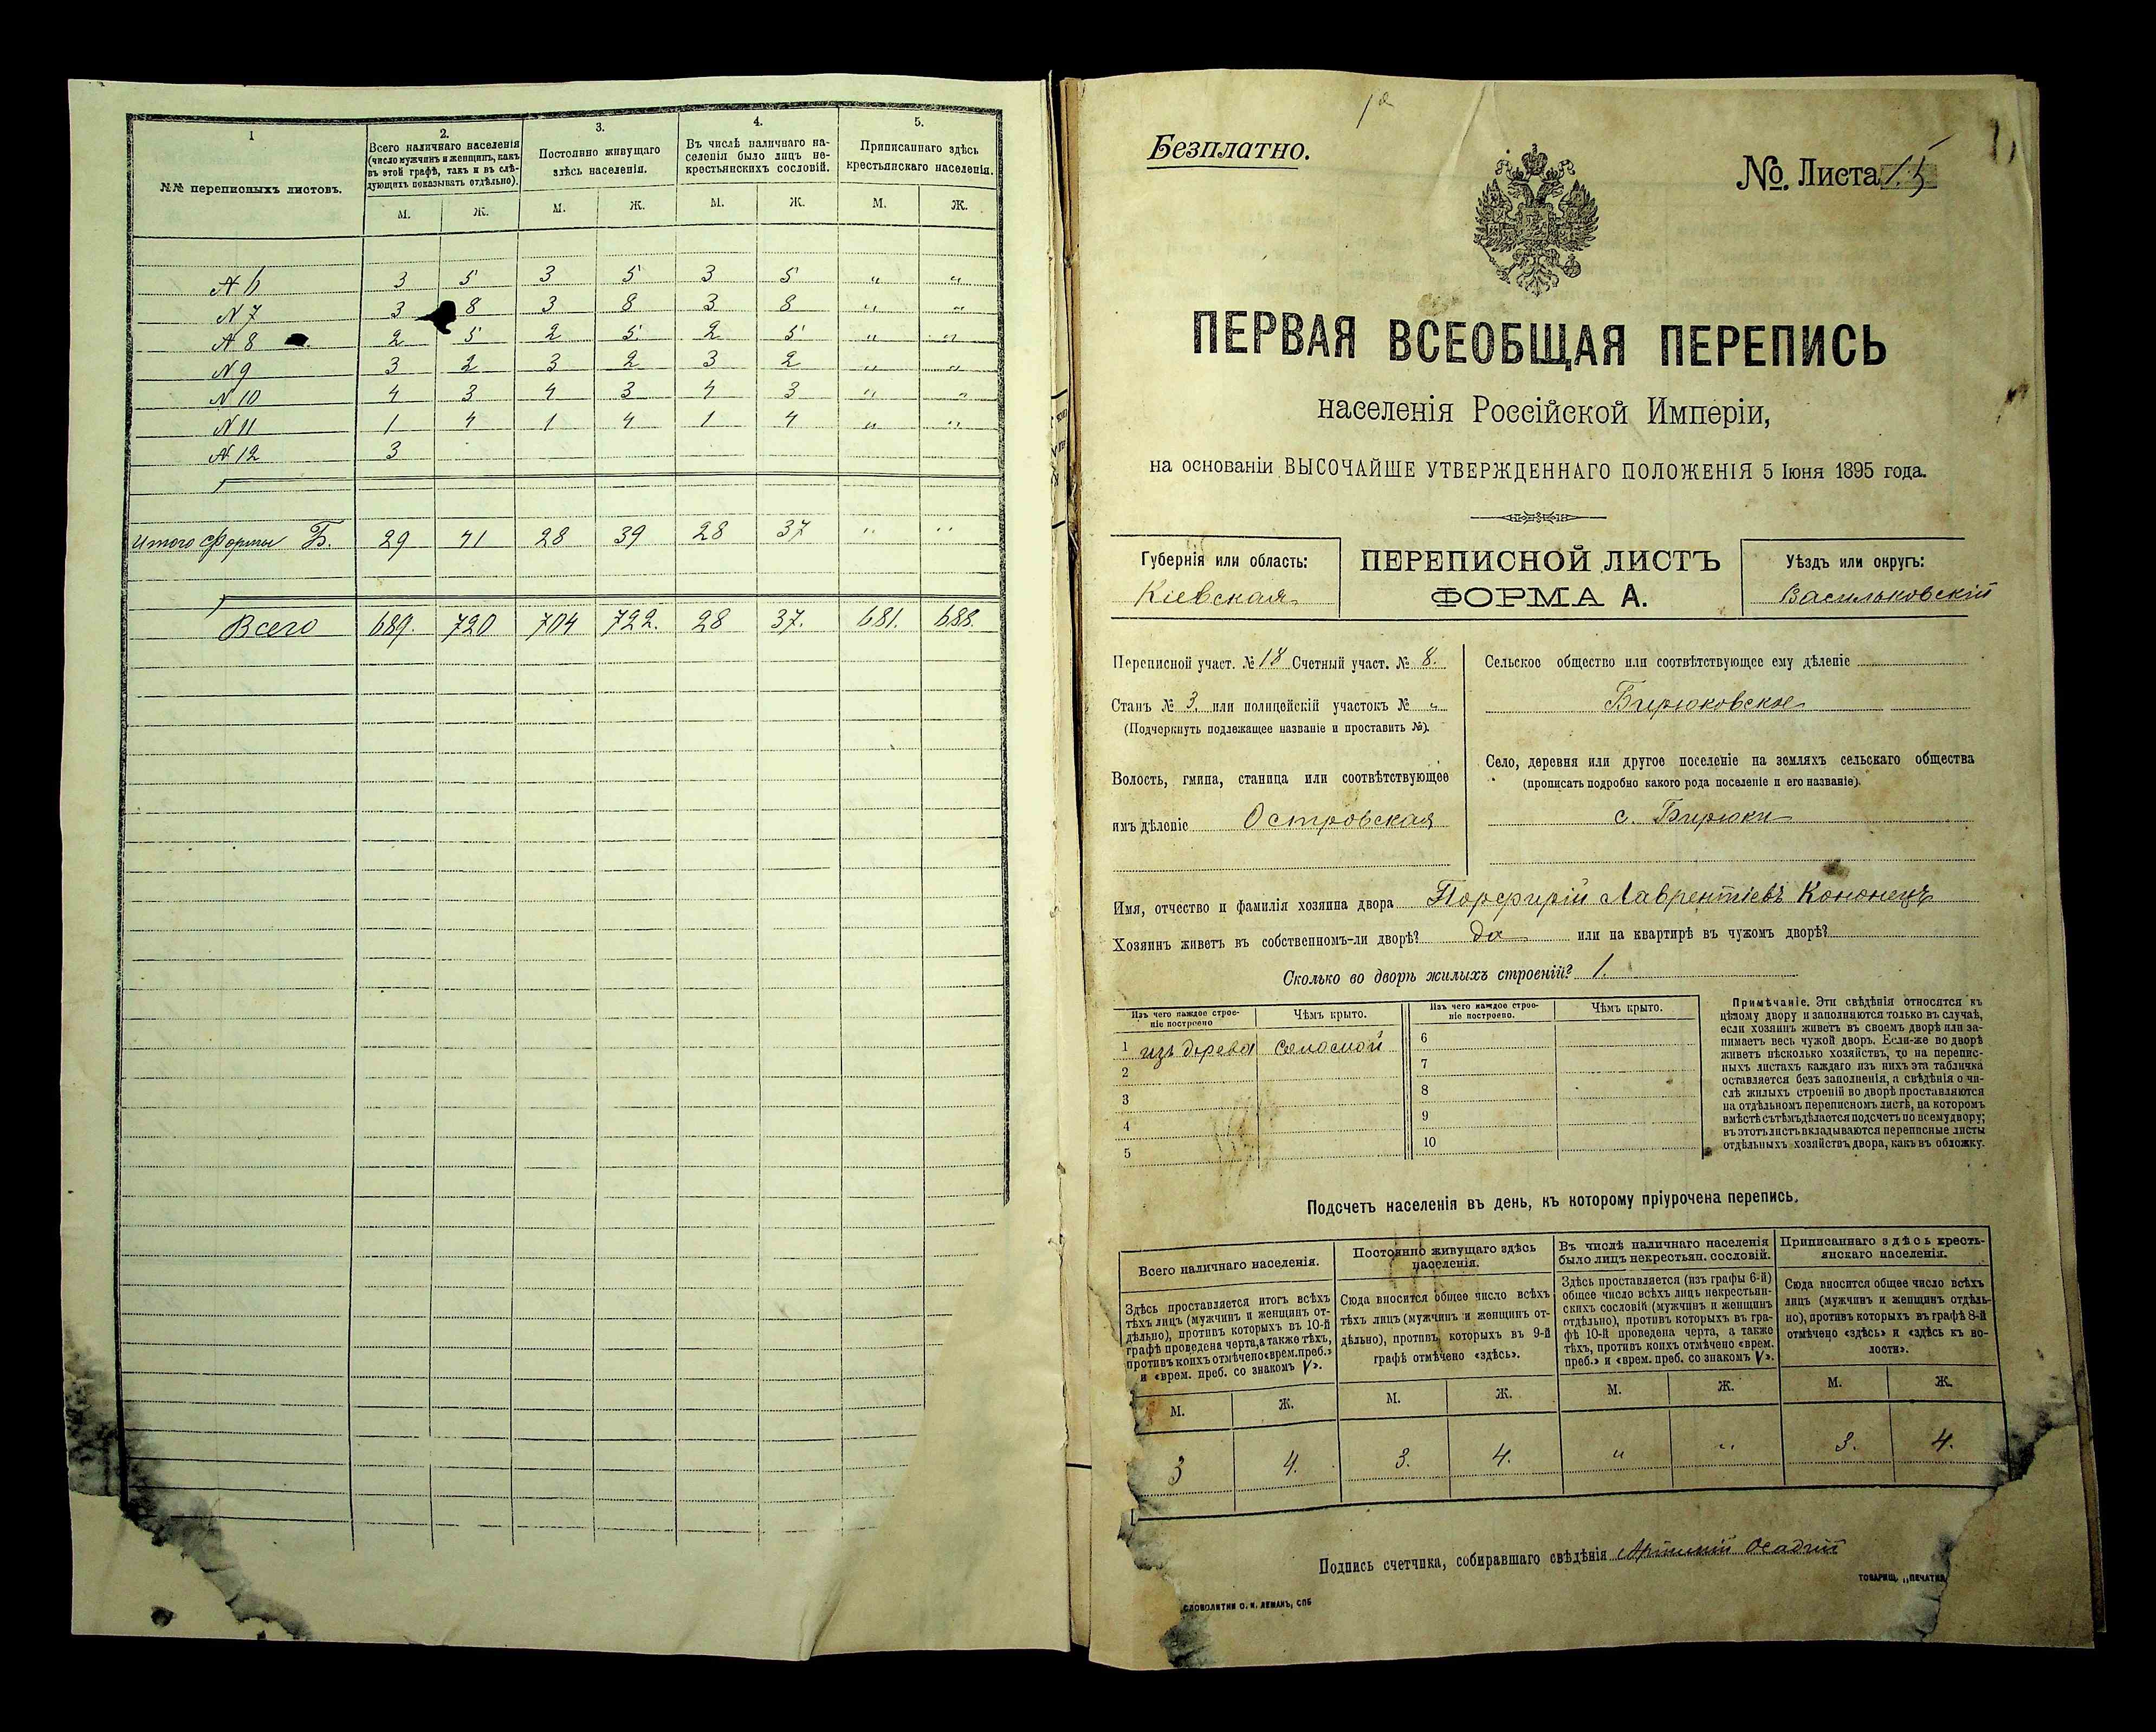 1
2.
3.
4.
5.
№№ переписныхъ листовъ.
Всего наличнаго населенія
(число мужчинъ и женщинъ, какъ
въ этой графѣ, такъ и въ слѣ-
дующихъ показывать отдѣльно).
Постоянно живущаго
здѣсь населенія.
Въ числѣ наличнаго на-
селенія было лицъ не-
крестьянскихъ сословій.
Приписаннаго здѣсь
крестьянскаго населенія.
М. Ж. М. Ж. М. Ж. М. Ж.
N 6 3 5 3 5 3 5 " "
N 7 3 8 3 8 3 8 " "
N 8 2 5 2 5 2 5 " "
N 9 3 2 3 2 3 2 " "
N 10 4 3 4 3 4 3 " "
N 11 1 4 1 4 1 4 " "
N 12 3
Итого формы Б. 29 41 28 39 28 37 " "
Всего 689. 720 704 722. 28 37. 681. 688.
Безплатно.
№. Листа
ПЕРВАЯ ВСЕОБЩАЯ ПЕРЕПИСЬ
населенія Россійской Имперіи,
на основаніи ВЫСОЧАЙШЕ УТВЕРЖДЕННАГО ПОЛОЖЕНІЯ 5 Іюня 1895 года.
Губернія или область:
Кіевская
ПЕРЕПИСНОЙ ЛИСТЪ
ФОРМА А.
Уѣздъ или округъ:
Васильковскій
Переписной участ. № 18 Счетный участ. № 8.
Станъ № 3. или полицейскій участокъ № "
(Подчеркнуть подлежащее названіе и проставить №).
Волость, гмина, станица или соотвѣтствующее
имъ дѣленіе Островская
Сельское общество или соотвѣтствующее ему дѣленіе
Бирюковское
Село, деревня или другое поселеніе на земляхъ сельскаго общества
(прописать подробно какого рода поселеніе и его названіе).
с. Бирюки
Имя, отчество и фамилія хозяина двора Порфирій Лаврентіевъ Кононецъ
Хозяинъ живетъ въ собственномъ-ли дворѣ? да или на квартирѣ въ чужомъ дворѣ?
Сколько во дворѣ жилыхъ строеній? 1.
Изъ чего каждое строе-
ніе построено
Чѣмъ крыто.
Изъ чего каждое строе-
ніе построено.
Чѣмъ крыто.
1 изъ дерева соломой
2
3
4
5
6
7
8
9
10
Примѣчаніе. Эти свѣдѣнія относятся къ
цѣлому двору и заполняются только въ случаѣ,
если хозяинъ живетъ въ своемъ дворѣ или за-
нимаетъ весь чужой дворъ. Если-же во дворѣ
живетъ нѣсколько хозяйствъ, то на перепис-
ныхъ листахъ каждаго изъ нихъ эта табличка
оставляется безъ заполненія, а свѣдѣнія о чи-
слѣ жилыхъ строеній во дворѣ проставляются
на отдѣльномъ переписномъ листѣ, на которомъ
вмѣстѣ съ тѣмъ дѣлается подсчетъ по всему двору;
въ этотъ листъ вкладываются переписные листы
отдѣльныхъ хозяйствъ двора, какъ въ обложку.
Подсчетъ населенія въ день, къ которому пріурочена перепись.
Всего наличнаго населенія.
Здѣсь проставляется итогъ всѣхъ
тѣхъ лицъ (мужчинъ и женщинъ от-
дѣльно), противъ которыхъ въ 10-й
графѣ проведена черта, а также тѣхъ,
противъ коихъ отмѣчено «врем. преб.»
и «врем. преб. со знакомъ V».
Постоянно живущаго здѣсь
населенія.
Сюда вносится общее число всѣхъ
тѣхъ лицъ (мужчинъ и женщинъ от-
дѣльно), противъ которыхъ въ 9-й
графѣ отмѣчено «здѣсь».
Въ числѣ наличнаго населенія
было лицъ некрестьян. сословій.
Здѣсь проставляется (изъ графы 6-й)
общее число всѣхъ лицъ некрестьян-
скихъ сословій (мужчинъ и женщинъ
отдѣльно), противъ которыхъ въ гра-
фѣ 10-й проведена черта, а также
тѣхъ, противъ коихъ отмѣчено «врем.
преб.» и «врем. преб. со знакомъ V».
Приписаннаго здѣсь кресть-
янскаго населенія.
Сюда вносится общее число всѣхъ
лицъ (мужчинъ и женщинъ отдѣль-
но), противъ которыхъ въ графѣ 8-й
отмѣчено «здѣсь» и «здѣсь къ во-
лости».
М. Ж. М. Ж. М. Ж. М. Ж.
3 4. 3. 4. " " 3. 4.
Подпись счетчика, собиравшаго свѣдѣнія Осадчій
СЛОВОЛИТНИ О. И. ЛЕМАНЪ, СПБ
ТОВАРИЩ. „ПЕЧАТНЯ